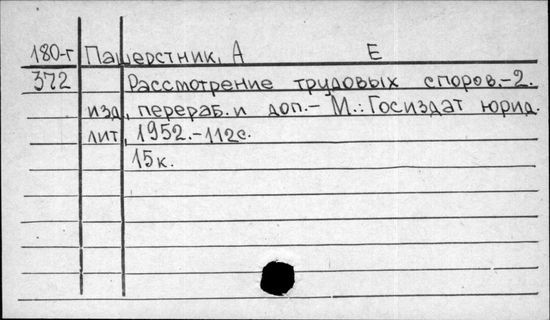 180-г Пашерстник, А Е
372 Рассмотрение трудовых споров.-2.
изд, перераб. и доп.- М.: Госиздат юрид.
лит, 1952.-112с.
15к.